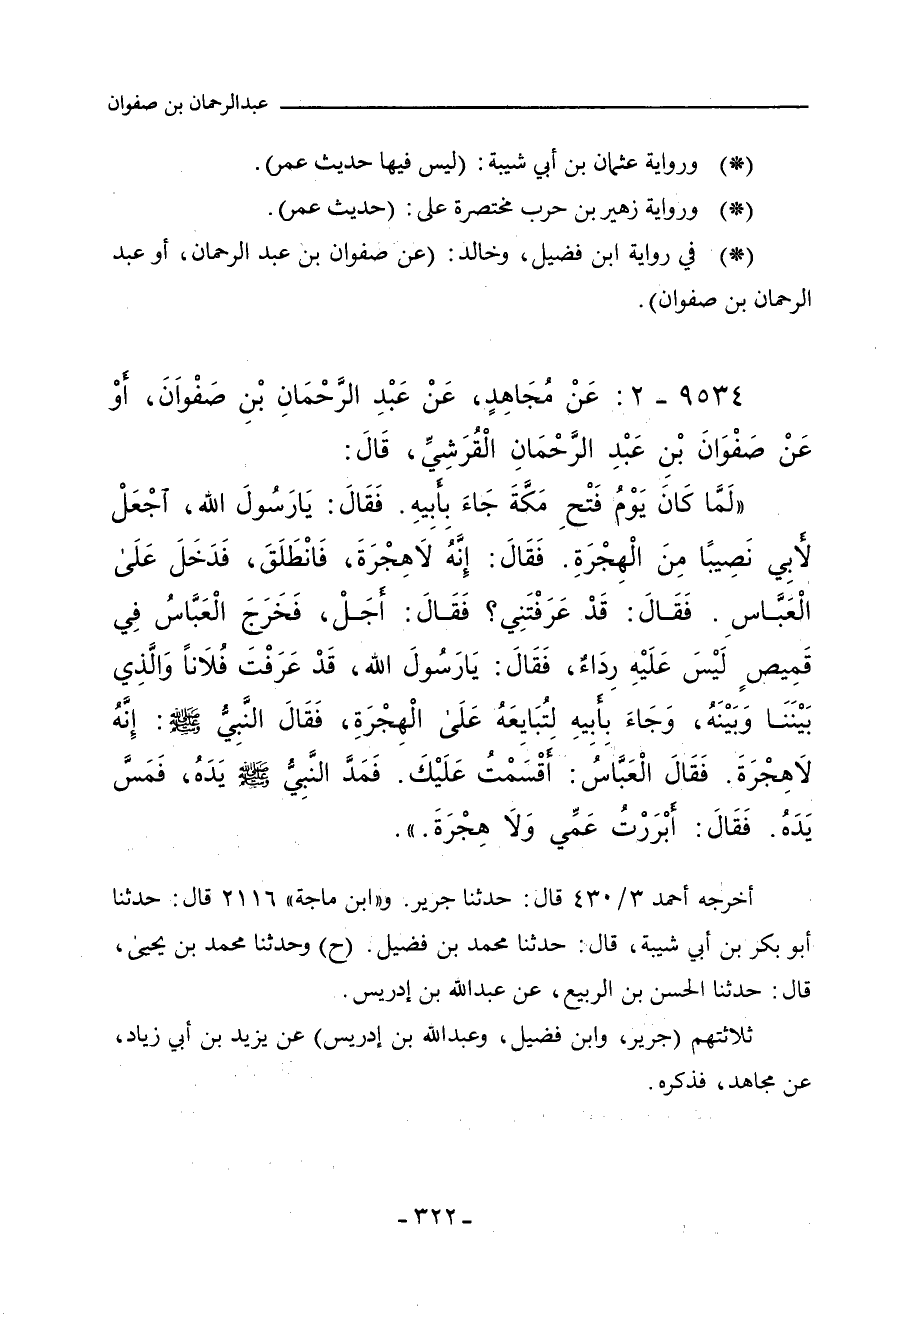 عبدالرحمان بن صفوان
(*) ورواية عثمان بن أبي شيبة: (ليس فيها حديث عمر).
(*) ورواية زهير بن حرب مختصرة على: (حديث عمر).
(*) في رواية ابن فضيل، وخالد: (عن صفوان بن عبد الرحمان، أو عبد
الرحمان بن صفوان).
٩٥٣٤ - ٢: عَنْ مُجَاهِدٍ، عَنْ عَبْدِ الرَّحْمَانِ بْنِ صَفْوَانَ، أَوْ
عَنْ صَفْوَانَ بْنِ عَبْدِ الرَّحْمَانِ الْقُرَشِيِّ، قَالَ:
«لَمَّا كَانَ يَوْمُ فَتْحِ مَكَّةَ جَاءَ بِأَبِيهِ. فَقَالَ: يَارَسُولَ الله، آجْعَلْ
لأَبِي نَصِيبًا مِنَ الْهِجْرَةِ. فَقَالَ: إِنَّهُ لَاهِجْرَةَ، فَانْطَلَقَ، فَدَخَلَ عَلَىٰ
الْعَبَّاسِ. فَقَالَ: قَدْ عَرَفْتَنِي؟ فَقَالَ: أَجَلْ، فَخَرَجَ الْعَبَّاسُ فِي
قَمِيصٍ لَيْسَ عَلَيْهِ رِدَاءٌ، فَقَالَ: يَارَسُولَ الله، قَدْ عَرَفْتَ فُلَاناً وَالَّذِي
بَيْنَنَا وَبَيْنَهُ، وَجَاءَ بِأَبِيهِ لِتُبَايِعَهُ عَلَىٰ الْهِجْرَةِ، فَقَالَ النَّبِيُّ ﷺ: إِنَّهُ
لَاهِجْرَةَ. فَقَالَ الْعَبَّاسُ: أَقْسَمْتُ عَلَيْكَ. فَمَدَّ النَّبِيُّ ﷺ يَدَهُ، فَمَسَّ
يَدَهُ. فَقَالَ: أَبْرَرْتُ عَمِّي وَلَا هِجْرَةَ.».
أخرجه أحمد ٣/ ٤٣٠ قال: حدثنا جرير. و«ابن ماجة» ٢١١٦ قال: حدثنا
أبو بكر بن أبي شيبة، قال: حدثنا محمد بن فضيل. (ح) وحدثنا محمد بن يحيىٰ،
قال: حدثنا الحسن بن الربيع، عن عبدالله بن إدريس.
ثلاثتهم (جرير، وابن فضيل، وعبدالله بن إدريس) عن يزيد بن أبي زياد،
عن مجاهد، فذكره.
- ٣٢٢ -